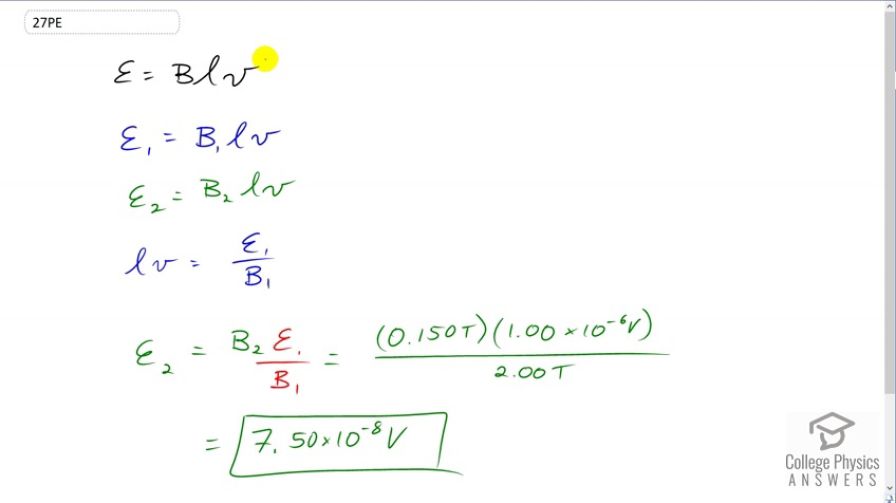 27PE
ε = Blv
ε₁ = B₁lv
ε₂ = B₂lv
lv = ε₁/B₁
ε₂ = B₂ε₁/B₁ = (0.150T)(1.00×10⁻⁶V)/2.00T
= 7.50×10⁻⁸V
College Physics
ANSWERS